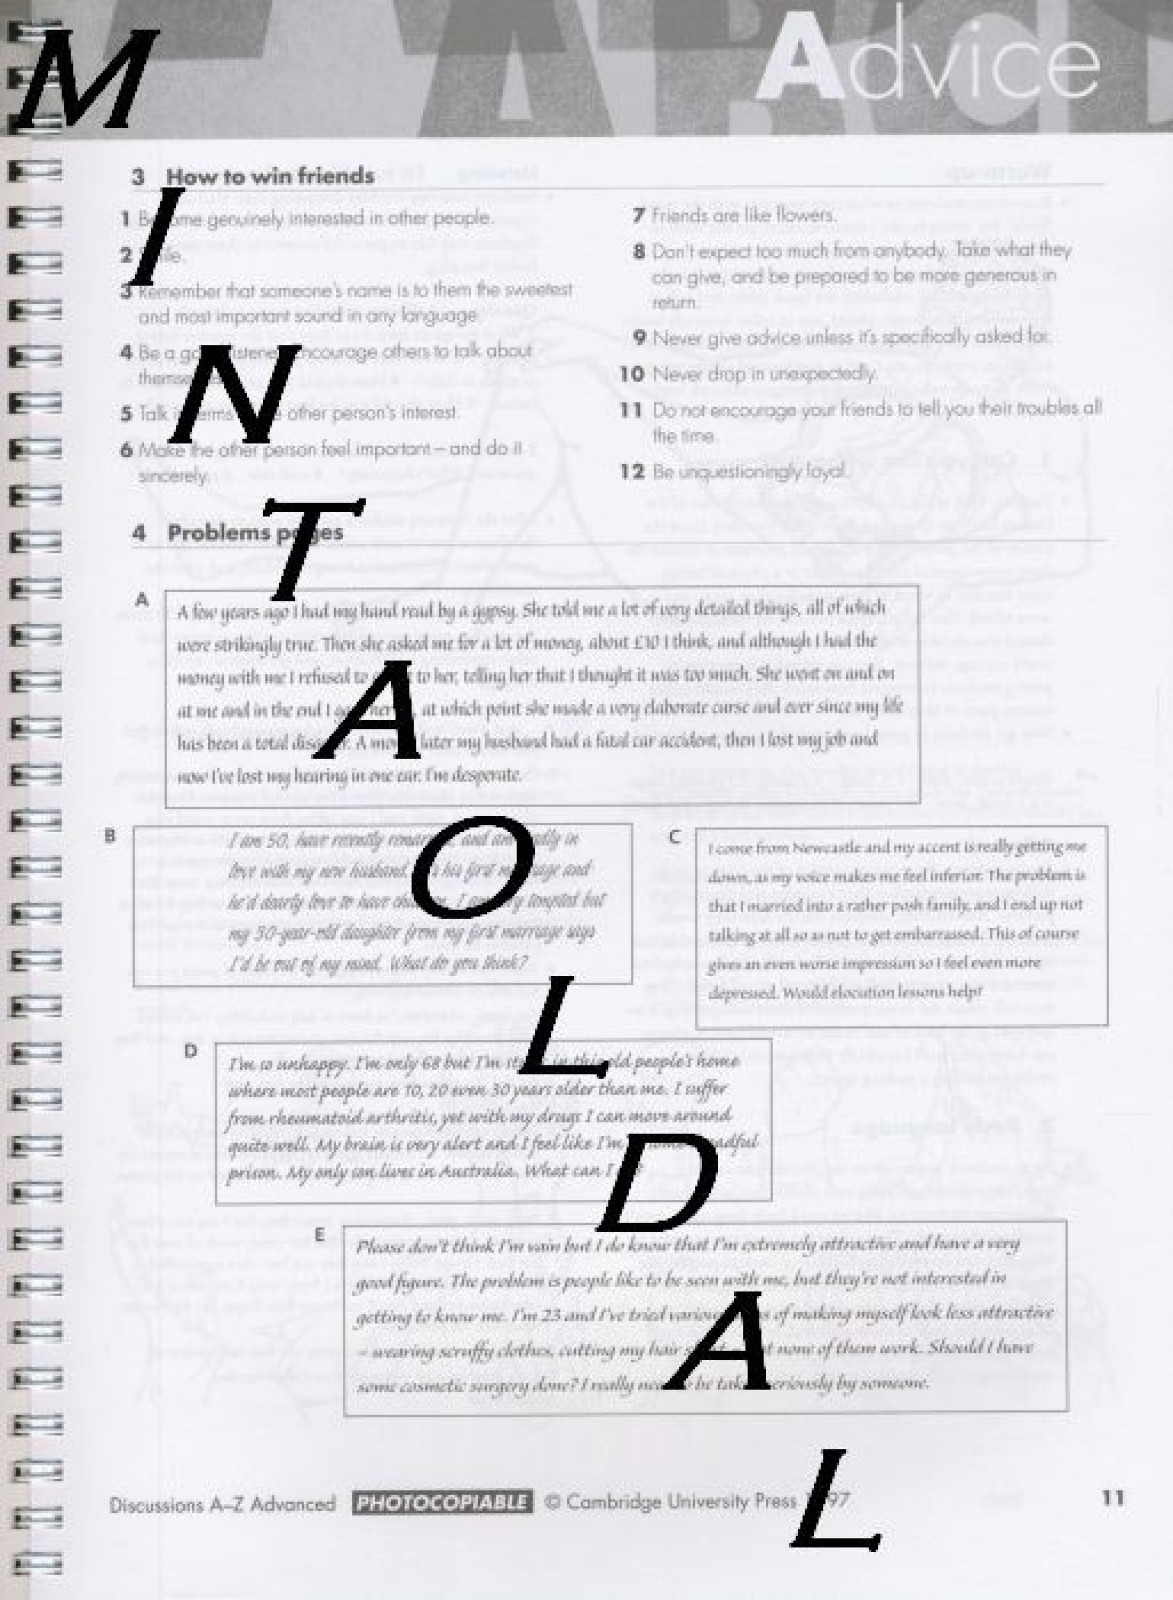 Advice
3 How to win friends
1 Become genuinely interested in other people.
2
3 Remember that someone's name is to them the sweetest
and most important sound in any language.
4 Be a listener. Encourage others to talk about
5 Talk other person's interest.
6 Make the other person feel important – and do it
sincerely.
7 Friends are like flowers.
8 Don't expect too much from anybody. Take what they
can give, and be prepared to be more generous in
return.
9 Never give advice unless it's specifically asked for.
10 Never drop in unexpectedly.
11 Do not encourage your friends to tell you their troubles all
the time.
12 Be unquestioningly loyal.
4 Problems pages
A
A few years ago I had my hand read by a gypsy. She told me a lot of very detailed things, all of which
were strikingly true. Then she asked me for a lot of money, about £10 I think, and although I had the
money with me I refused to to her, telling her that I thought it was too much. She went on and on
at me and in the end I at which point she made a very elaborate curse and ever since my life
has been a total A later my husband had a fatal car accident, then I lost my job and
now I've lost my hearing in one ear. I'm desperate.
B
I am 50, have recently and am in
love with my new husband. his first marriage and
he'd dearly love to have tempted but
my 30-year-old daughter from my first marriage says
I'd be out of my mind. What do you think?
C
I come from Newcastle and my accent is really getting me
down, as my voice makes me feel inferior. The problem is
that I married into a rather posh family, and I end up not
talking at all so as not to get embarrassed. This of course
gives an even worse impression so I feel even more
depressed. Would elocution lessons help?
D
I'm so unhappy. I'm only 68 but I'm in this old people's home
where most people are 10, 20 even 30 years older than me. I suffer
from rheumatoid arthritis, yet with my drugs I can move around
quite well. My brain is very alert and I feel like I'm
prison. My only son lives in Australia. What can I
E
Please don't think I'm vain but I do know that I'm extremely attractive and have a very
good figure. The problem is people like to be seen with me, but they're not interested in
getting to know me. I'm 23 and I've tried various of making myself look less attractive
– wearing scruffy clothes, cutting my hair none of them work. Should I have
some cosmetic surgery done? I really be taken seriously by someone.
Discussions A–Z Advanced PHOTOCOPIABLE © Cambridge University Press
11
M
I
N
T
A
O
L
D
A
L